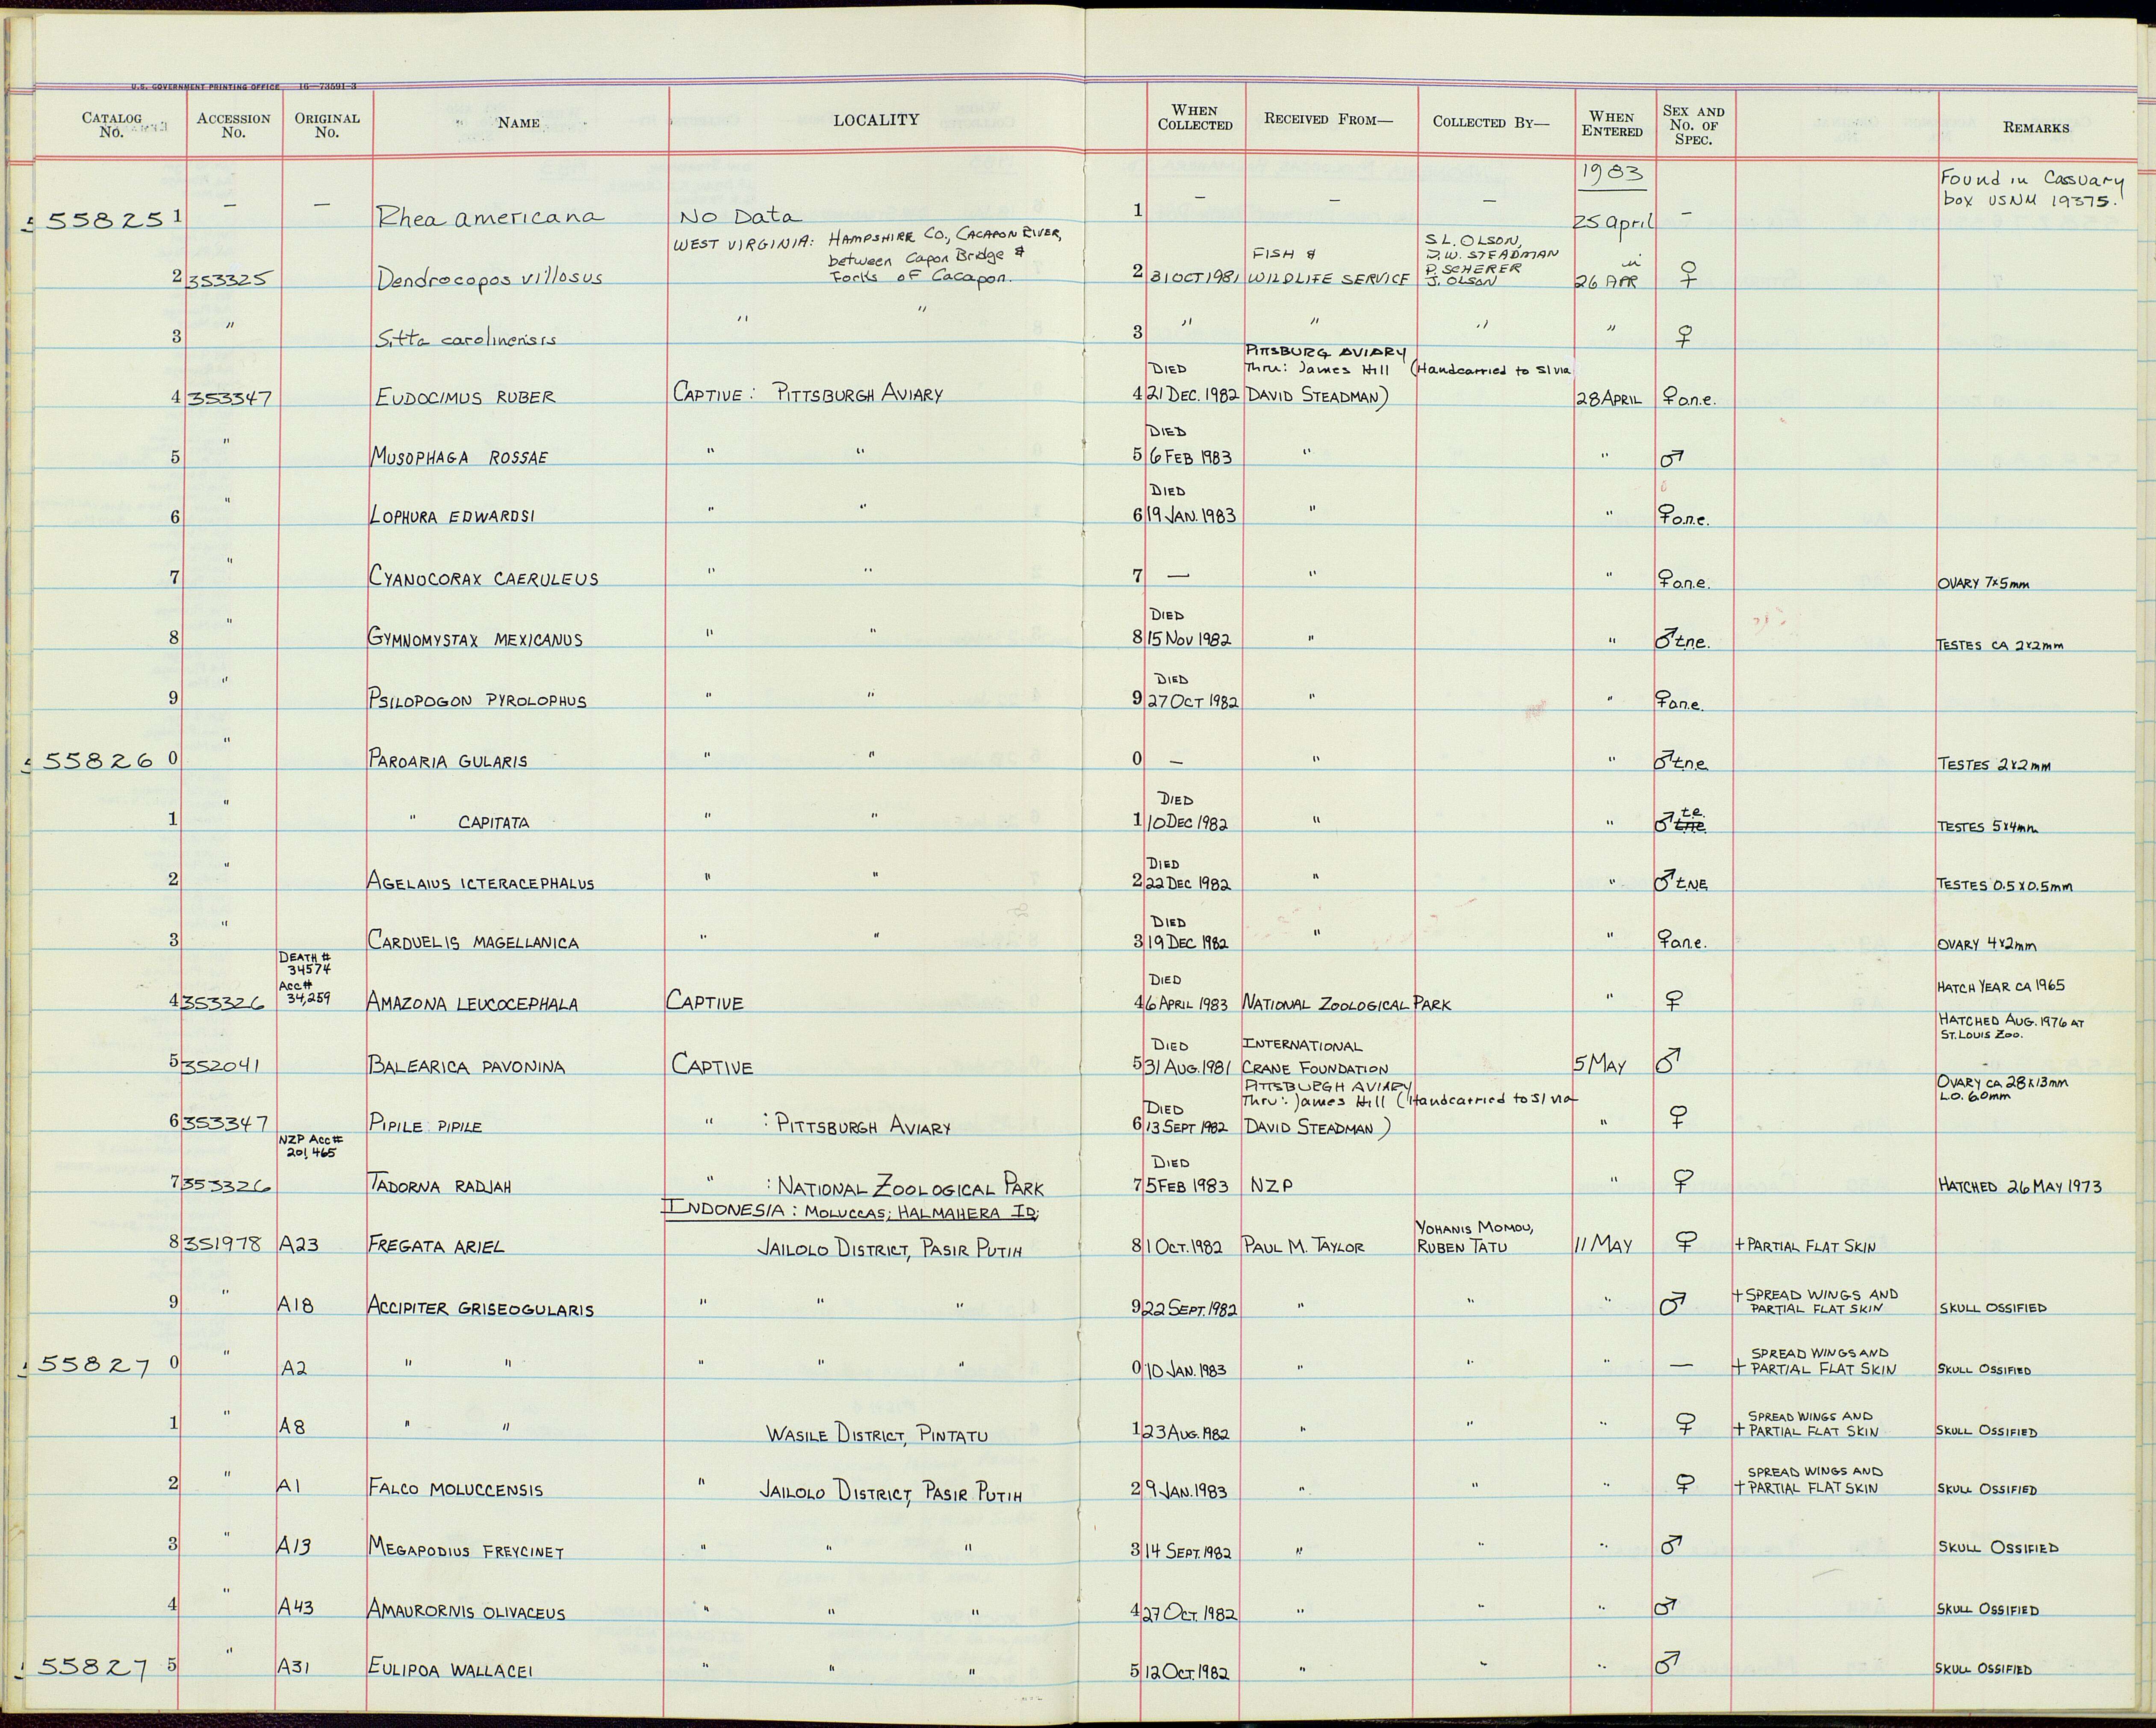 U.S. GOVERNMENT PRINTING OFFICE 16—73591-3
CATALOG No. ACCESSION No. ORIGINAL No. NAME LOCALITY WHEN COLLECTED RECEIVED FROM— COLLECTED BY— WHEN ENTERED SEX AND No. OF SPEC. REMARKS
1983
Found in Cassuary
box USNM 19375.
55825 1 — — Rhea americana No Data 1 — — — 25 April —
WEST VIRGINIA: HAMPSHIRE CO., CACAPON RIVER,
between Capon Bridge &
Forks of Cacapon.
FISH &
S.L. OLSON,
D.W. STEADMAN
P. SCHERER
J. OLSON
2 353325 Dendrocopos villosus 2 31 OCT 1981 WILDLIFE SERVICE 26 APR ♀
3 " Sitta carolinensis " " 3 " " " " ♀
PITTSBURG AVIARY
DIED Thru: James Hill (Handcarried to SI via
4 353347 EUDOCIMUS RUBER CAPTIVE: PITTSBURGH AVIARY 4 21 DEC. 1982 DAVID STEADMAN) 28 APRIL ♀ o.n.e.
DIED
5 " MUSOPHAGA ROSSAE " " 5 6 FEB 1983 " " ♂
DIED
6 " LOPHURA EDWARDSI " " 6 19 JAN. 1983 " " ♀ o.n.e.
7 " CYANOCORAX CAERULEUS " " 7 — " " ♀ o.n.e. OVARY 7x5mm
DIED
8 " GYMNOMYSTAX MEXICANUS " " 8 15 NOV 1982 " " ♂ t.n.e. TESTES CA 2x2mm
DIED
9 " PSILOPOGON PYROLOPHUS " " 9 27 OCT 1982 " " ♀ o.n.e.
55826 0 " PAROARIA GULARIS " " 0 — " " ♂ t.n.e. TESTES 2x2mm
DIED t.e.
1 " " CAPITATA " " 1 10 DEC 1982 " " ♂ tne TESTES 5x4mm
DIED
2 " AGELAIUS ICTERACEPHALUS " " 2 22 DEC 1982 " " ♂ t.NE TESTES 0.5x0.5mm
DIED
3 " CARDUELIS MAGELLANICA " " 3 19 DEC 1982 " " ♀ o.n.e. OVARY 4x2mm
DEATH #
34574
Acc#
34,259
DIED
4 353326 AMAZONA LEUCOCEPHALA CAPTIVE 4 6 APRIL 1983 NATIONAL ZOOLOGICAL PARK " ♀ HATCH YEAR CA 1965
HATCHED AUG. 1976 AT
ST. LOUIS ZOO.
DIED INTERNATIONAL
5 352041 BALEARICA PAVONINA CAPTIVE 5 31 AUG. 1981 CRANE FOUNDATION 5 MAY ♂
PITTSBURGH AVIARY
Thru: James Hill (Handcarried to SI via
OVARY CA 28x13mm
L.O. 60mm
DIED
6 353347 PIPILE PIPILE " : PITTSBURGH AVIARY 6 13 SEPT 1982 DAVID STEADMAN) " ♀
NZP Acc#
201,465
DIED
7 353326 TADORNA RADJAH " : NATIONAL ZOOLOGICAL PARK 7 5 FEB 1983 NZP " ♀ HATCHED 26 MAY 1973
INDONESIA: MOLUCCAS; HALMAHERA ID;
YOHANIS MOMOU,
8 351978 A23 FREGATA ARIEL JAILOLO DISTRICT, PASIR PUTIH 8 1 OCT. 1982 PAUL M. TAYLOR RUBEN TATU 11 MAY ♀ + PARTIAL FLAT SKIN
+ SPREAD WINGS AND
9 " A18 ACCIPITER GRISEOGULARIS " " " 9 22 SEPT. 1982 " " " ♂ PARTIAL FLAT SKIN SKULL OSSIFIED
SPREAD WINGS AND
55827 0 " A2 " " " " " 0 10 JAN. 1983 " " " — + PARTIAL FLAT SKIN SKULL OSSIFIED
SPREAD WINGS AND
1 " A8 " " WASILE DISTRICT, PINTATU 1 23 AUG. 1982 " " " ♀ + PARTIAL FLAT SKIN SKULL OSSIFIED
SPREAD WINGS AND
2 " A1 FALCO MOLUCCENSIS " JAILOLO DISTRICT, PASIR PUTIH 2 9 JAN. 1983 " " " ♀ + PARTIAL FLAT SKIN SKULL OSSIFIED
3 " A13 MEGAPODIUS FREYCINET " " " 3 14 SEPT. 1982 " " " ♂ SKULL OSSIFIED
4 " A43 AMAURORNIS OLIVACEUS " " " 4 27 OCT. 1982 " " " ♂ SKULL OSSIFIED
55827 5 " A31 EULIPOA WALLACEI " " " 5 12 OCT. 1982 " " " ♂ SKULL OSSIFIED